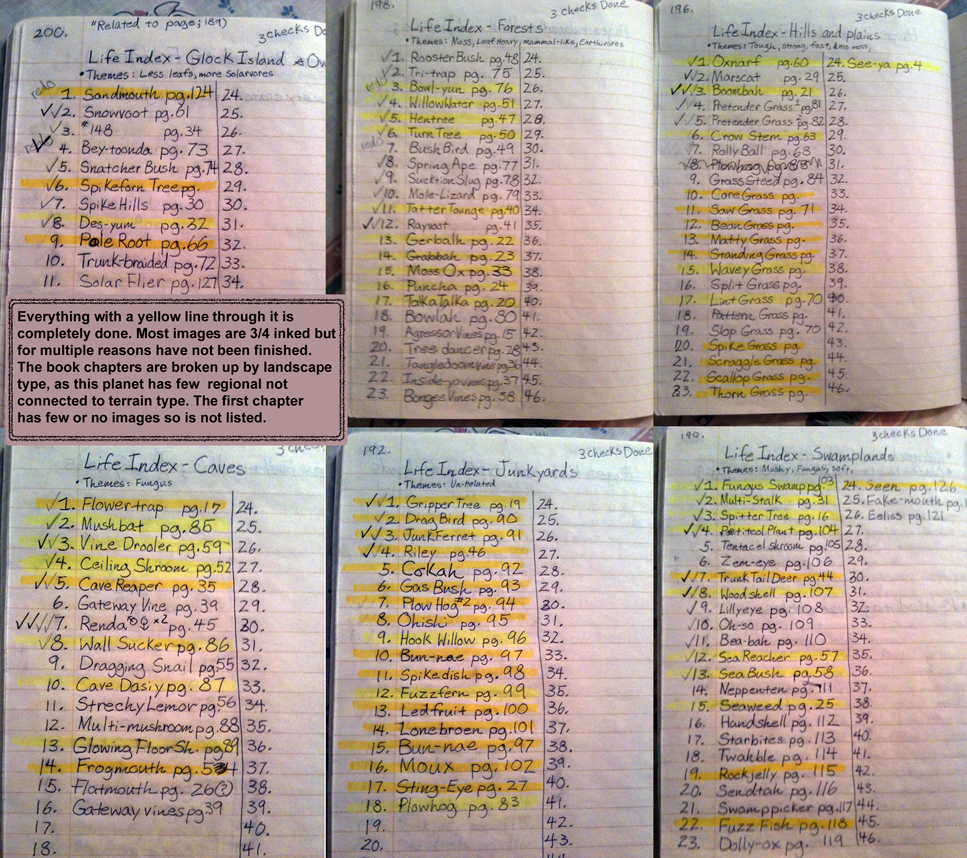 200.
"Related to page; 189)
3 checks Do
Life Index - Glock Island
• Themes: Less leafs, more Solarvores
redo
1. Sandmouth pg. 124
24.
2. Snowvoot pg. 61
25.
3. #148 pg. 34
26.
redo
4. Bey-toonda pg. 73
27.
5. Snatcher Bush pg. 74
28.
6. Spikeforn Tree pg.
29.
7. Spike Hills pg. 30
30.
8. Des-yum pg. 32
31.
9. Pole Root pg. 66
32.
10. Trunk-braided pg. 72
33.
11. Solar Flier pg. 127
34.
Everything with a yellow line through it is
completely done. Most images are 3/4 inked but
for multiple reasons have not been finished.
The book chapters are broken up by landscape
type, as this planet has few regional not
connected to terrain type. The first chapter
has few or no images so is not listed.
198.
3 checks Done
Life Index - Forests
• Themes: Moss, Leaf Heavy, mammal-like, Earthvores
1. Rooster Bush pg. 48
24.
2. Tri-trap pg. 75
25.
redo
3. Bowl-yun pg. 76
26.
4. Willow Water pg. 51
27.
5. Hentree pg. 47
28.
6. Turn Tree pg. 50
29.
redo
7. Bush Bird pg. 49
30.
8. Spring Ape pg. 77
31.
9. Suction Slug pg. 78
32.
10. Mole-Lizard pg. 79
33.
11. Tatter Tounge pg. 40
34.
12. Rayvoot pg. 41
35.
13. Gerbalh pg. 22
36.
14. Grabbah pg. 23
37.
15. Moss Ox pg. 33
38.
16. Puncha pg. 24
39.
17. Talka Talka pg. 20
40.
18. Bowlah pg. 80
41.
19. Agressor Vines pg. 15
42.
20. Tree dancer pg. 28
43.
21. Tangledoom vines pg. 36
44.
22. Inside-yovines pg. 37
45.
23. Bongee Vines pg. 38
46.
196.
3 checks Done
Life Index - Hills and plains
• Themes: Tough, strong, fast, less moss,
1. Oxnarf pg. 60
24. See-ya pg. 4
2. Marscat pg. 29
25.
3. Boombah pg. 21
26.
4. Pretender Grass 1 pg. 81
27.
5. Pretender Grass 2 pg. 82
28.
6. Crow Stem pg. 63
29.
7. Rolly Ball pg. 68
30.
8. Plowhog pg. 83
31.
9. Grass Steed pg. 84
32.
10. Core Grass pg.
33.
11. Saw Grass pg. 71
34.
12. Bean Grass pg.
35.
13. Matty Grass pg.
36.
14. Standing Grass pg.
37.
15. Wavey Grass pg.
38.
16. Split Grass pg.
39.
17. Lint Grass pg. 70
40.
18. Pattern Grass pg.
41.
19. Slop Grass pg. 70
42.
20. Spike Grass pg.
43.
21. Scraggle Grass pg.
44.
22. Scallop Grass pg.
45
23. Thorn Grass pg.
46.
3 che
Life Index - Caves
• Themes: Fungus
1. Flower-trap pg. 17
24.
2. Mushbat pg. 85
25.
3. Vine Drooler pg. 59
26.
4. Ceiling Shroom pg. 52
27.
5. Cave Reaper pg. 35
28.
6. Gateway Vine pg. 39
29.
7. Renda ♂♀ x2 pg. 45
30.
8. Wall Sucker pg. 86
31.
9. Dragging Snail pg 55
32.
10. Cave Dasiy pg. 87
33.
11. Strechy Lemor pg. 56
34.
12. Multi-mushroom pg. 88
35.
13. Glowing Floor Sh. pg 89
36.
14. Frogmouth pg. 54
37.
15. Flatmouth pg. 26(?)
38.
16. Gateway vines pg 39
39.
17.
40.
18.
41.
192.
3 checks Done
Life Index - Junkyards
• Themes: Un-Related
1. Gripper Tree pg. 19
24.
2. Drag Bird pg. 90
25.
3. Junk Ferret pg. 91
26.
4. Riley pg. 46
27.
5. Cokah pg. 92
28.
6. Gas Bush pg. 93
29.
7. Plow Hog #2 pg. 94
30.
8. Ohishi pg. 95
31.
9. Hook Willow pg. 96
32.
10. Bun-nae pg. 97
33.
11. Spikedish pg. 98
34.
12. Fuzzfern pg. 99
35.
13. Ledfruit pg. 100
36.
14. Lonebroen pg. 101
37.
15. Bun-nae pg. 97
38.
16. Moux pg. 102
39.
17. Sting-Eye pg. 27
40.
18. Plowhog pg. 83
41.
19.
42.
20.
43.
190.
3 checks Done
Life Index - Swamplands
• Themes: Mushy, Fungus, soft,
1. Fungus Swamp pg. 103
24. Seen pg. 126
2. Multi-Stalk pg. 31
25. Fake-mouth pg.
3. Spitter Tree pg. 16
26. Eeliss pg. 121
4. Petitcol Plant pg. 104
27.
5. Tentacel shroom pg. 105
28.
6. Zem-eye pg. 106
29.
7. Trunk Tail Deer pg. 44
30.
8. Wood shell pg. 107
31.
9. Lillyeye pg. 108
32.
10. Oh-so pg. 109
33.
11. Bea-bah pg. 110
34.
12. Sea Reacher pg. 57
35.
13. Sea Bush pg. 58
36.
14. Neppenten pg. 111
37.
15. Seaweed pg. 25
38.
16. Handshell pg. 112
39.
17. Starbites pg. 113
40.
18. Twahble pg. 114
41.
19. Rockjelly pg. 115
42.
20. Sendtah pg. 116
43.
21. Swamppicker pg. 117
44.
22. Fuzz Fish pg. 118
45.
23. Dolly-ox pg. 119
46.